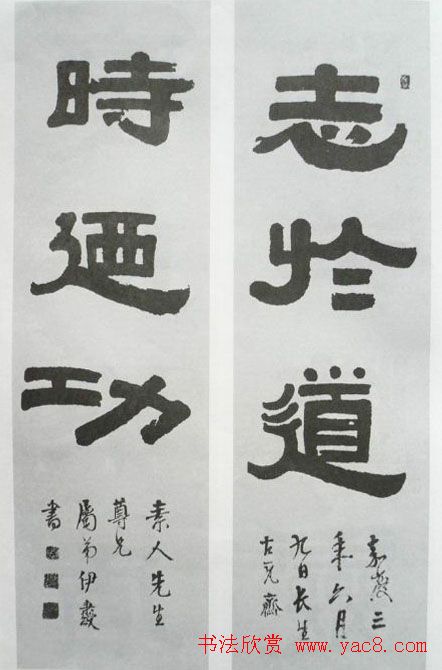 志於道
嘉慶三
年六月
九日長生
古瓦齋
時廼功
素人先生
尊兄
屬弟伊
書
书法欣赏 www.yac8.com